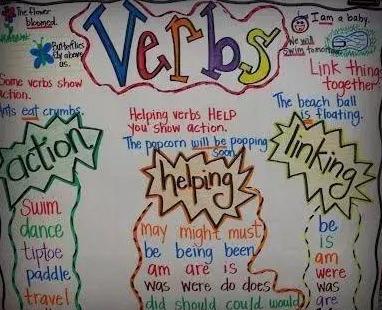 The flower
bloomed.
Butterflies
fly above
us.
Verbs
I am a baby.
We will
swim tomorrow
Some verbs show
action.
Ants eat crumbs.
Helping verbs HELP
you show action.
The popcorn will be popping
soon.
Link thing
together
The beach ball
is floating.
action
Swim
dance
tiptoe
paddle
travel
helping
may might must
be being been
am are is
was were do does
did should could would
linking
be
is
am
were
was
are